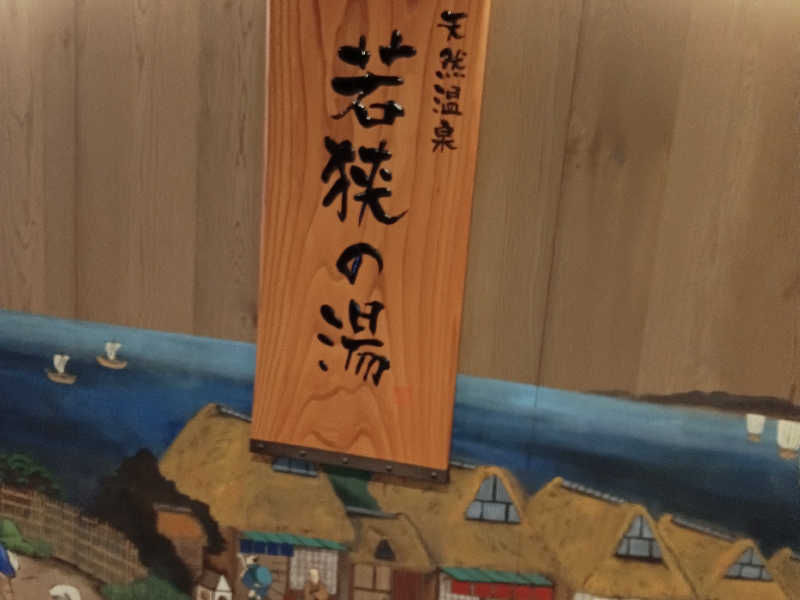 天然温泉
若狭の湯